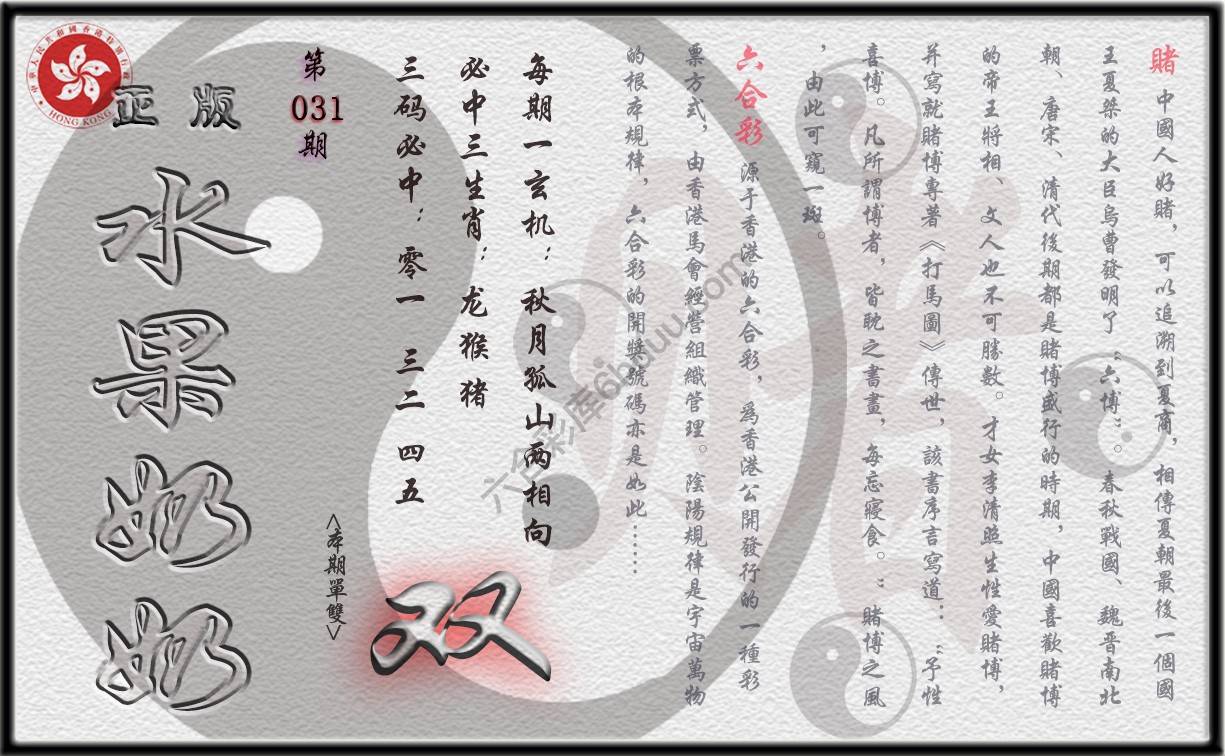 賭 中國人好賭，可以追溯到夏商，相傳夏朝最後一個國
王夏桀的大臣烏曹發明了“六博”。春秋戰國、魏晋南北
朝、唐宋、清代後期都是賭博盛行的時期，中國喜歡賭博
的帝王將相、文人也不可勝數。才女李清照生性愛賭博，
并寫就賭博專著《打馬圖》傳世，該書序言寫道：“予性
喜博。凡所謂博者，皆耽之書畫，每忘寢食。”賭博之風
，由此可窺一斑。
六合彩 源于香港的六合彩，爲香港公開發行的一種彩
票方式，由香港馬會經營組織管理。陰陽規律是宇宙萬物
的根本規律，六合彩的開獎號碼亦是如此……
每期一玄机：秋月孤山两相向
必中三生肖：龙猴猪
三码必中：零一 三二 四五
<本期單雙>
双
第
031
期
正版
水果奶奶
中華人民共和國香港特別行政區
HONG KONG
六合彩库6hduu.com